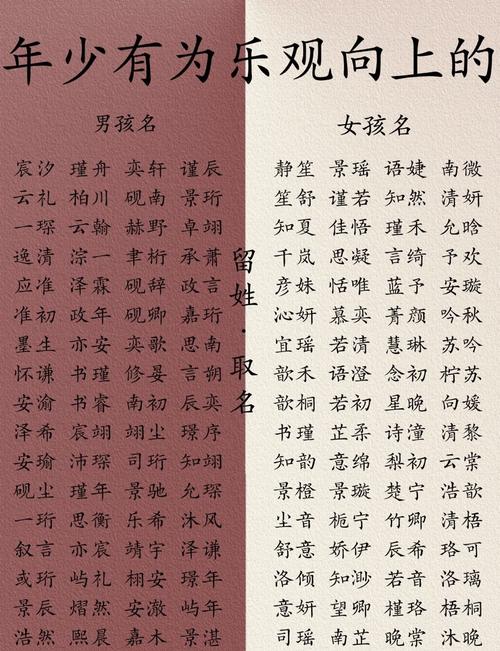 年少有为乐观向上的
男孩名
宸汐 瑾舟 奕轩 谨辰
云礼 柏川 砚南 景珩
一琛 云翰 赫野 卓翊
逸清 淙一 聿桁 承萧
应准 泽霖 砚辞 政言
准初 政年 砚卿 嘉珩
墨生 亦安 奕歌 思南
怀谦 书瑾 修晏 言朔
安渝 书睿 南初 辰奕
泽希 宸翊 翊尘 璟序
安瑜 沛琛 司珩 知翊
砚尘 瑾年 景驰 允琛
一珩 思衡 乐希 沐风
叙言 亦宸 靖宇 泽谦
或珩 屿礼 栩安 璟年
景辰 熠然 安澈 屿年
浩然 熙晨 嘉木 景湛
留姓·取名
女孩名
静笙 景瑶 语婕 南微
笙舒 谨若 知然 清妍
知夏 佳悟 瑾禾 允晗
千岚 思凝 言绮 予欢
彦姝 恬唯 蓝予 安璇
沁妍 慕奕 菁颜 吟秋
宜瑶 若清 慧琳 苏吟
歆禾 语澄 念初 柠苏
歆桐 若初 星晚 向媛
书瑾 芷柔 诗潼 清黎
知韵 意绵 梨初 云棠
景橙 景璇 楚宁 浩歆
尘音 栀宁 竹卿 清梧
舒意 娇伊 辰希 珞可
洛倾 知渺 若音 洛璃
意妍 望卿 槿珞 梧桐
司瑶 南芷 晚棠 沐晚